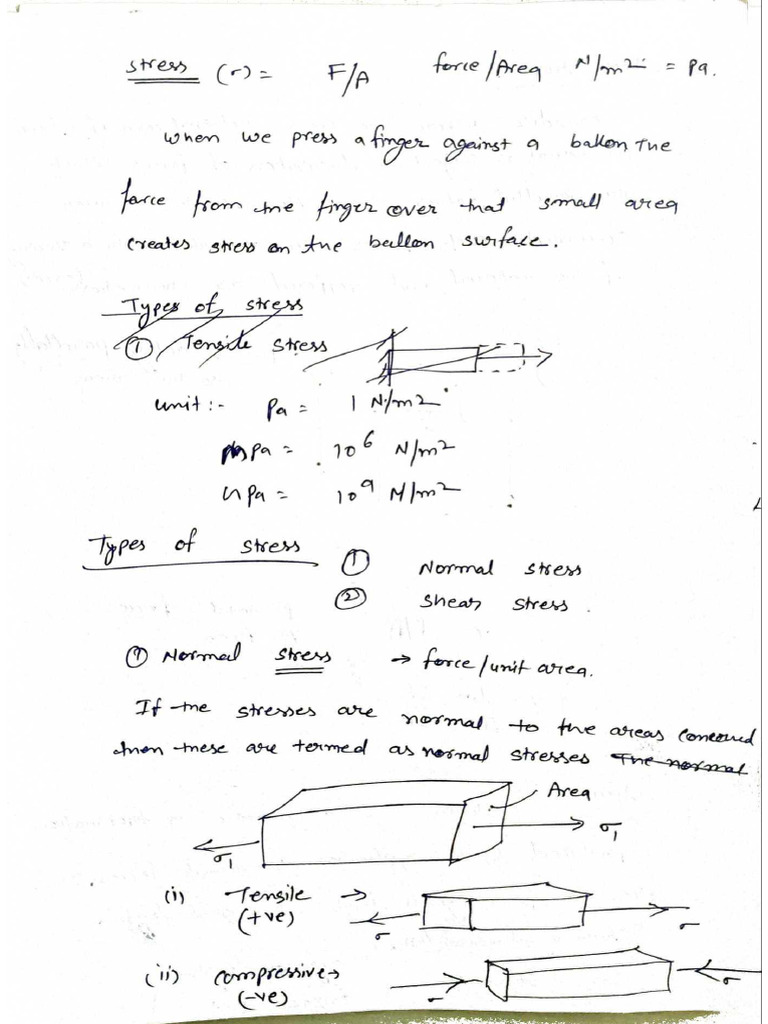 stress (σ) = F/A force/Area N/m2 = Pa.
when we press a finger against a ballon the
force from the finger over that small area
creates stress on the ballon surface.
Types of stress
① Tensile stress
unit :- Pa = 1 N/m2
MPa = 10^6 N/m2
GPa = 10^9 N/m2
Types of stress
① Normal stress
② Shear stress.
① Normal stress → force/unit area.
If the stresses are normal to the areas concerned
then these are termed as normal stresses The normal
Area
σ1
σ1
(i) Tensile →
(+ve)
σ σ
(ii) compressive →
(-ve)
σ σ